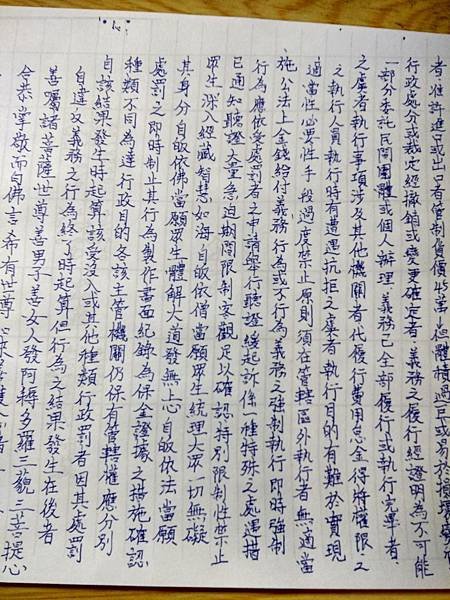 者准許進口或出口者管制貨價45萬總體積過巨或易於損壞
行政處分或裁定經撤銷或變更確定者義務之履行經證明為不可能
一部分委託民間團體或個人辦理義務已全部履行或執行完畢者
之虞者執行事項涉及其他機關者代履行費用怠金得將權限之
之執行人員執行時有遭遇抗拒之虞者執行目的有難於實現
適當性必要性手段過度禁止原則須在管轄區外執行者無適當
施公法上金錢給付義務行為或不行為義務之強制執行即時強制
行為應依受處罰者之申請舉行聽證緩起訴係一種特殊之處遇措
已通知聽證大量急迫期間限制客觀足以確認特別限制性禁止
眾生深入經藏智慧如海自皈依僧當願眾生統理大眾一切無礙
其身分自皈依佛當願眾生體解大道發無上心自皈依法當願
處罰之即時制止其行為製作書面紀錄為保全證據之措施確認
種類不同為達行政目的各該主管機關仍保有管轄權應分別
自該結果發生時起算該受沒入或其他種類行政罰者因其處罰
自違反義務之行為終了時起算但行為之結果發生在後者
善囑諸菩薩世尊善男子善女人發阿耨多羅三藐三菩提心
合恭掌敬而白佛言希有世尊